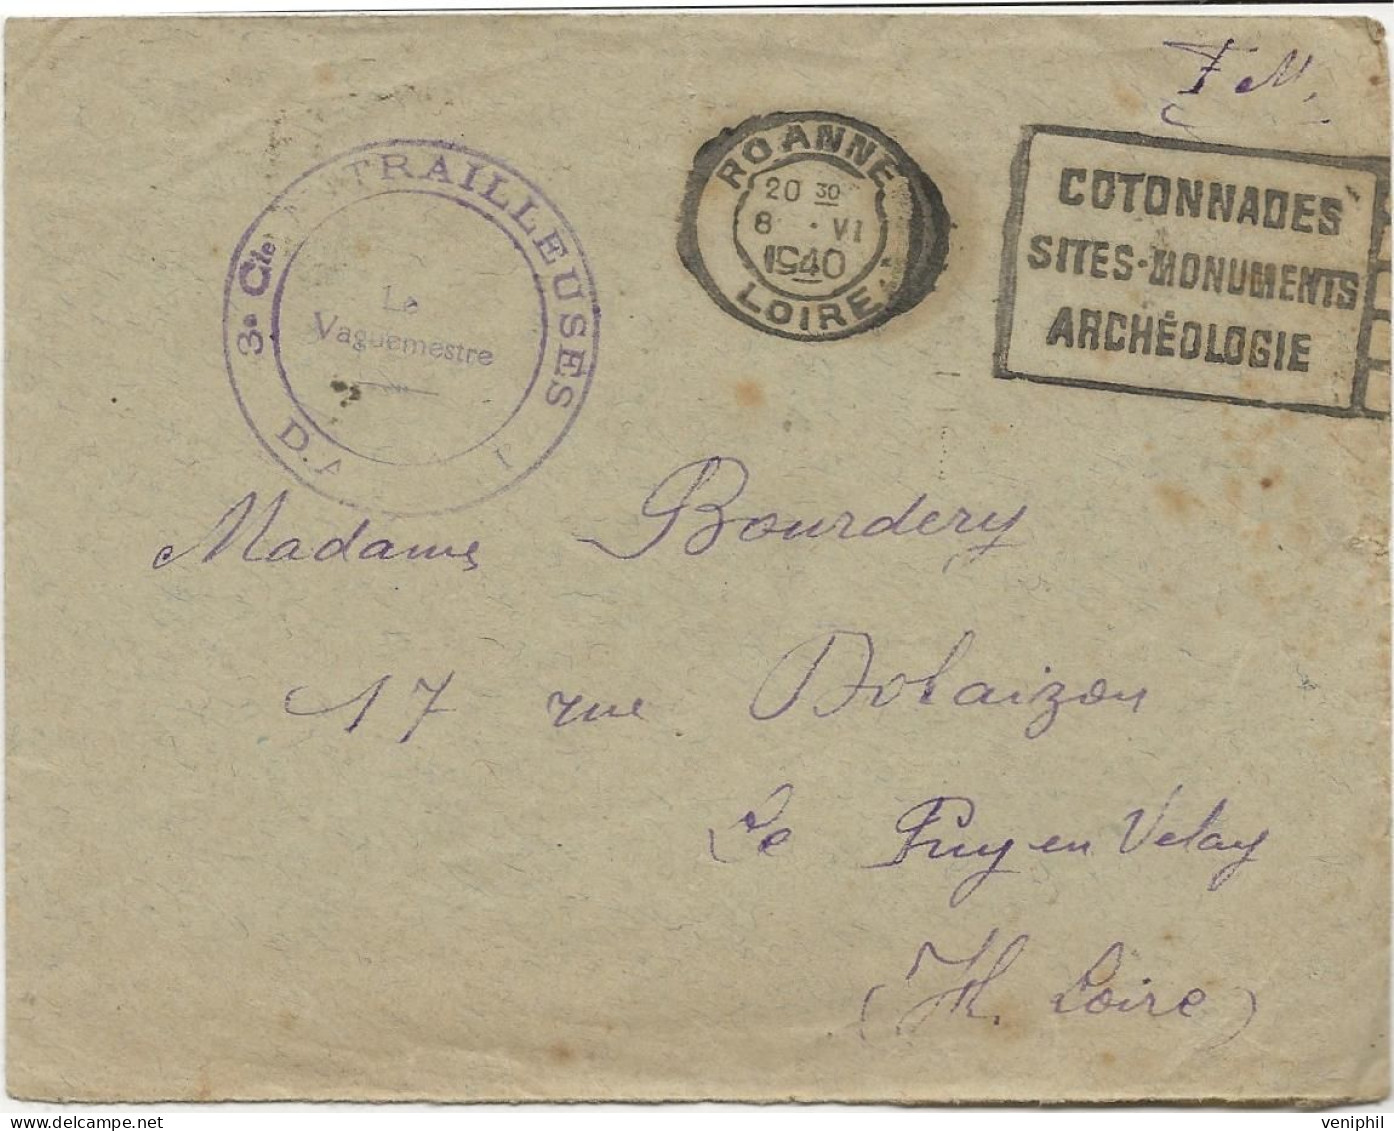 F M.
ROANNE
20 30
8 · VI
1940
LOIRE
COTONNADES
SITES·MONUMENTS
ARCHÉOLOGIE
3e Cie MITRAILLEUSES
Le
Vaguemestre
D.A
Madame Bourdery
17 rue Dolaizon
Le Puy en Velay
(H. Loire)
veniphil